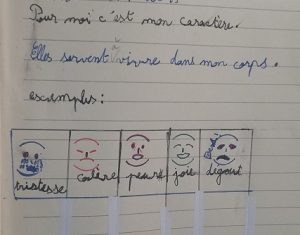 Pour moi c'est mon caractère.
Elles servent à vivre dans mon corps.
exemples:
tristesse colère peur joie dégout